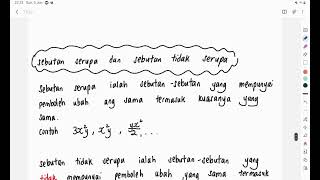 sebutan serupa dan sebutan tidak serupa
Sebutan serupa ialah sebutan-sebutan yang mempunyai
pemboleh ubah yang sama termasuk kuasanya yang
sama.
Contoh 3x²y, x²y, yx²/2, ...
sebutan tidak serupa ialah sebutan-sebutan yang
tidak mempunyai pemboleh ubah yang sama termasuk